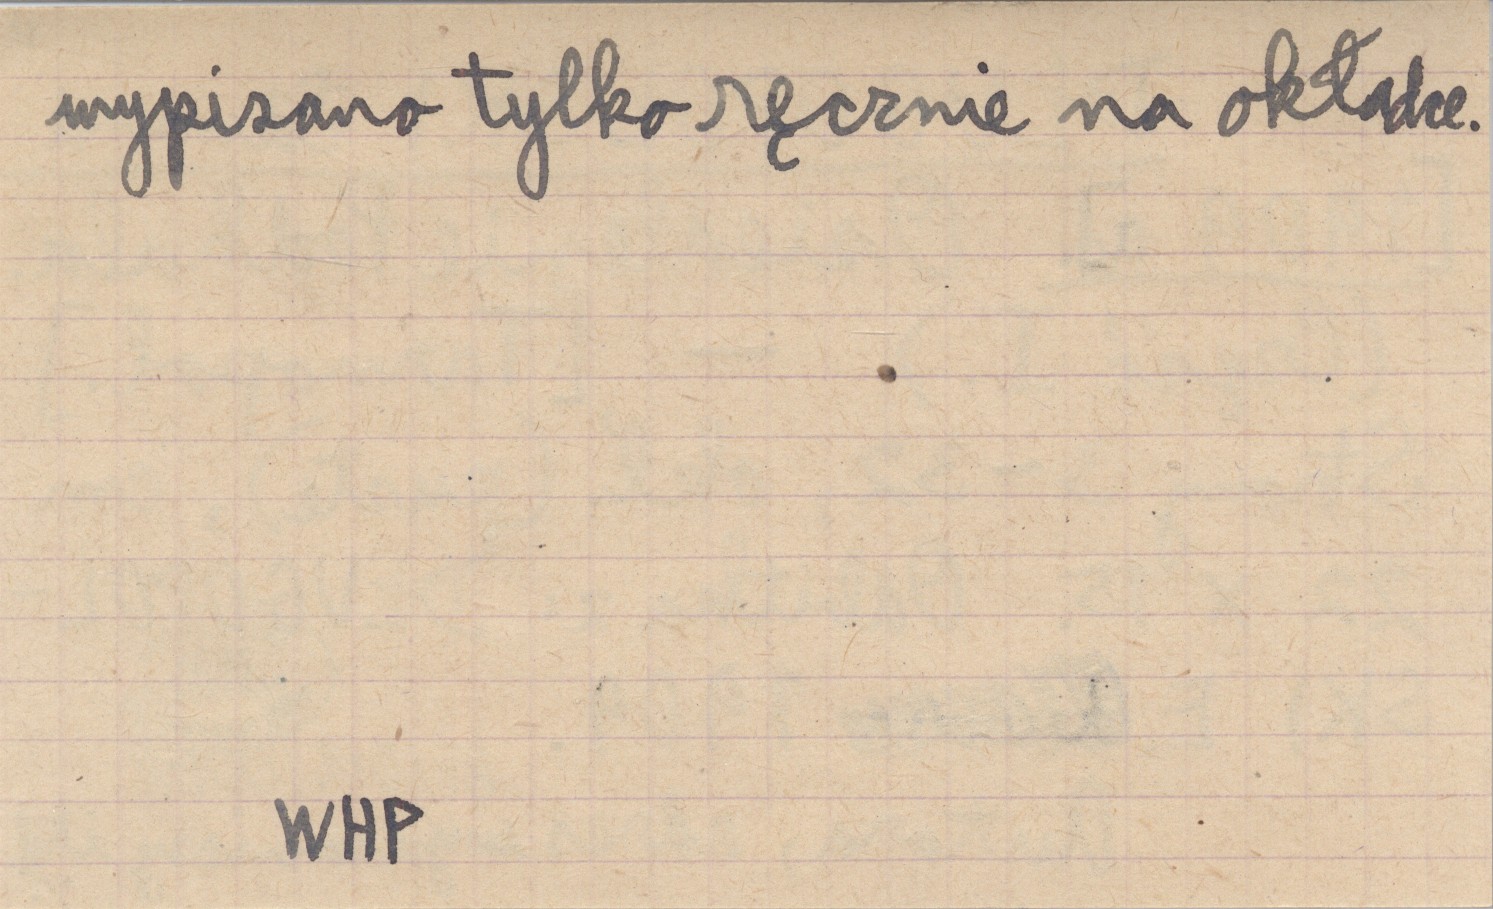 wypisano tylko ręcznie na okładce.
WHP